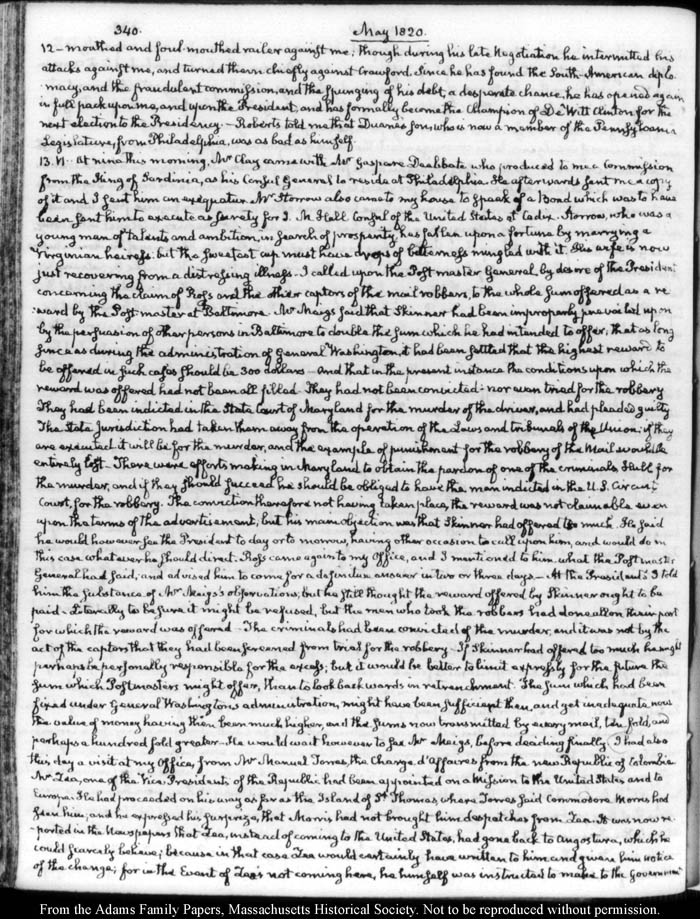 340.
May 1820.
12 – mouthed and foul-mouthed railer against me; though during his late Negotiation he intermitted his
attacks against me, and turned them chiefly against Crawford. Since he has found the South-American diplo-
macy, and the fraudulent commission, and the spunging of his debt, a desperate chance, he has opened again
in full pack upon me, and upon the President, and has formally become the Champion of De Witt Clinton for the
next election to the Presidency. – Roberts told me that Duane's son, who is now a member of the Pennsylvania
Legislature, from Philadelphia, was as bad as himself.
13. VI. At nine this morning, Mr Clay came with Mr Gaspare Deabbate who produced to me a Commission
from the King of Sardinia, as his Consul General to reside at Philadelphia. He afterwards sent me a copy
of it and I sent him an exequatur. Mr Storrow also came to my house to speak of a Bond which was to have
been sent him to execute as surety for J. M. Hall Consul of the United States at Cadiz. Storrow, who was a
young man of talents and ambition, in search of prosperity, has fallen upon a fortune by marrying a
Virginian heiress. but the sweetest cup must have drops of bitterness mingled with it. His wife is now
just recovering from a distressing illness. – I called upon the Post master General, by desire of the President
concerning the claim of Ross and the other captors of the mail robbers, to the whole sum offered as a re-
ward by the Post-master at Baltimore. Mr Meigs said that Skinner had been improperly prevailed upon
by the persuasion of other persons in Baltimore to double the sum which he had intended to offer; that as long
since as during the administration of General Washington, it had been settled that the highest reward to
be offered in such cases should be 300 dollars – And that in the present instance the conditions upon which the
reward was offered had not been all filled. They had not been convicted – nor even tried for the robbery
They had been indicted in the State Court of Maryland for the murder of the driver, and had pleaded guilty
The State jurisdiction had taken them away from the operation of the Laws and tribunals of the Union; if they
are executed it will be for the murder, and the example of punishment for the robbery of the Mail would be
entirely lost. There were efforts making in Maryland to obtain the pardon of one of the criminals Hull for
the murder, and if they should succeed he should be obliged to have the man indicted in the U.S. Circuit
Court, for the robbery. The conviction therefore not having taken place, the reward was not claimable even
upon the terms of the advertisement, but his main objection was that Skinner had offered too much. He said
he would however see the President to day or to morrow, having other occasion to call upon him, and would do in
this case whatever he should direct. Ross came again to my office, and I mentioned to him what the Post master
General had said; and advised him to come for a definitive answer in two or three days – At the President's I told
him the substance of Mr Meigs's observations; but he still thought the reward offered by Skinner ought to be
paid – Literally to be sure it might be refused, but the men who took the robbers had done all on their part
for which the reward was offered – The criminals had been convicted of the murder, and it was not by the
act of the captors that they had been screened from trial for the robbery – If Skinner had offered too much he might
perhaps be personally responsible for the excess; but it would be better to limit expressly for the future the
sum which Postmasters might offer, than to look backwards in retrenchment. The sum which had been
fixed under General Washington's administration, might have been sufficient then, and yet inadequate now
the value of money having then been much higher, and the sums now transmitted by every mail, ten fold, and
perhaps a hundred fold greater – He would wait however to see Mr Meigs, before deciding finally. I had also
this day a visit at my Office, from Mr Manuel Torres, the Chargé d'affaires from the new Republic of Colombia
Mr Zea, one of the Vice-Presidents of the Republic had been appointed on a Mission to the United States and to
Europe. He had proceeded on his way as far as the Island of St Thomas where Torres said Commodore Morris had
seen him; and he expressed his surprize, that Morris had not brought him despatches from Zea. It was now re-
ported in the Newspapers that Zea, instead of coming to the United States, had gone back to Angostura, which he
could scarcely believe; because in that case Zea would certainly have written to him and given him notice
of the change; for in the Event of Zea's not coming here, he himself was instructed to make to the Government
From the Adams Family Papers, Massachusetts Historical Society. Not to be reproduced without permission.